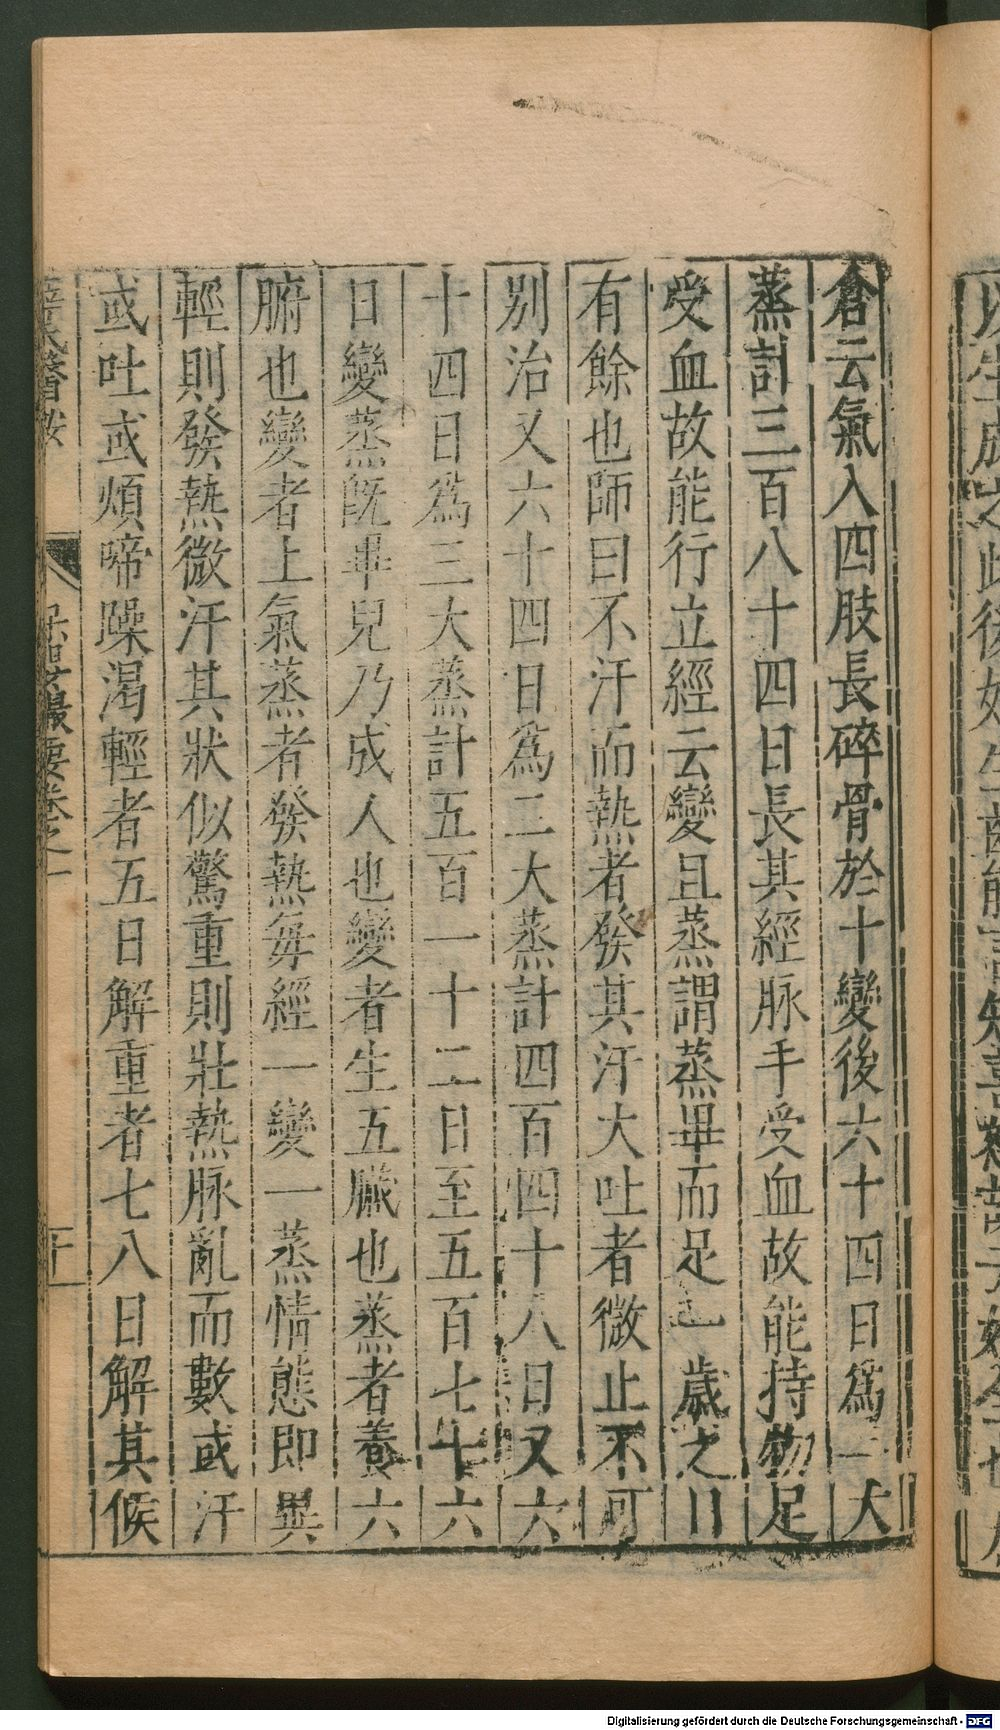 倉云氣入四肢長碎骨於十變後六十四日爲一大
蒸計三百八十四日長其經脉手受血故能持物足
受血故能行立經云變且蒸謂蒸畢而足一歲之日
有餘也師曰不汗而熱者發其汗大吐者微止不可
别治又六十四日爲二大蒸計四百四十八日又六
十四日爲三大蒸計五百一十二日至五百七十六
日變蒸既畢兒乃成人也變者生五臟也蒸者養六
腑也變者上氣蒸者發熱每經一變一蒸情態即異
輕則發熱微汗其狀似驚重則壯熱脉亂而數或汗
或吐或煩啼躁渴輕者五日解重者七八日解其候
薛氏醫按 保嬰撮要卷之一 十
Digitalisierung gefördert durch die Deutsche Forschungsgemeinschaft - DFG